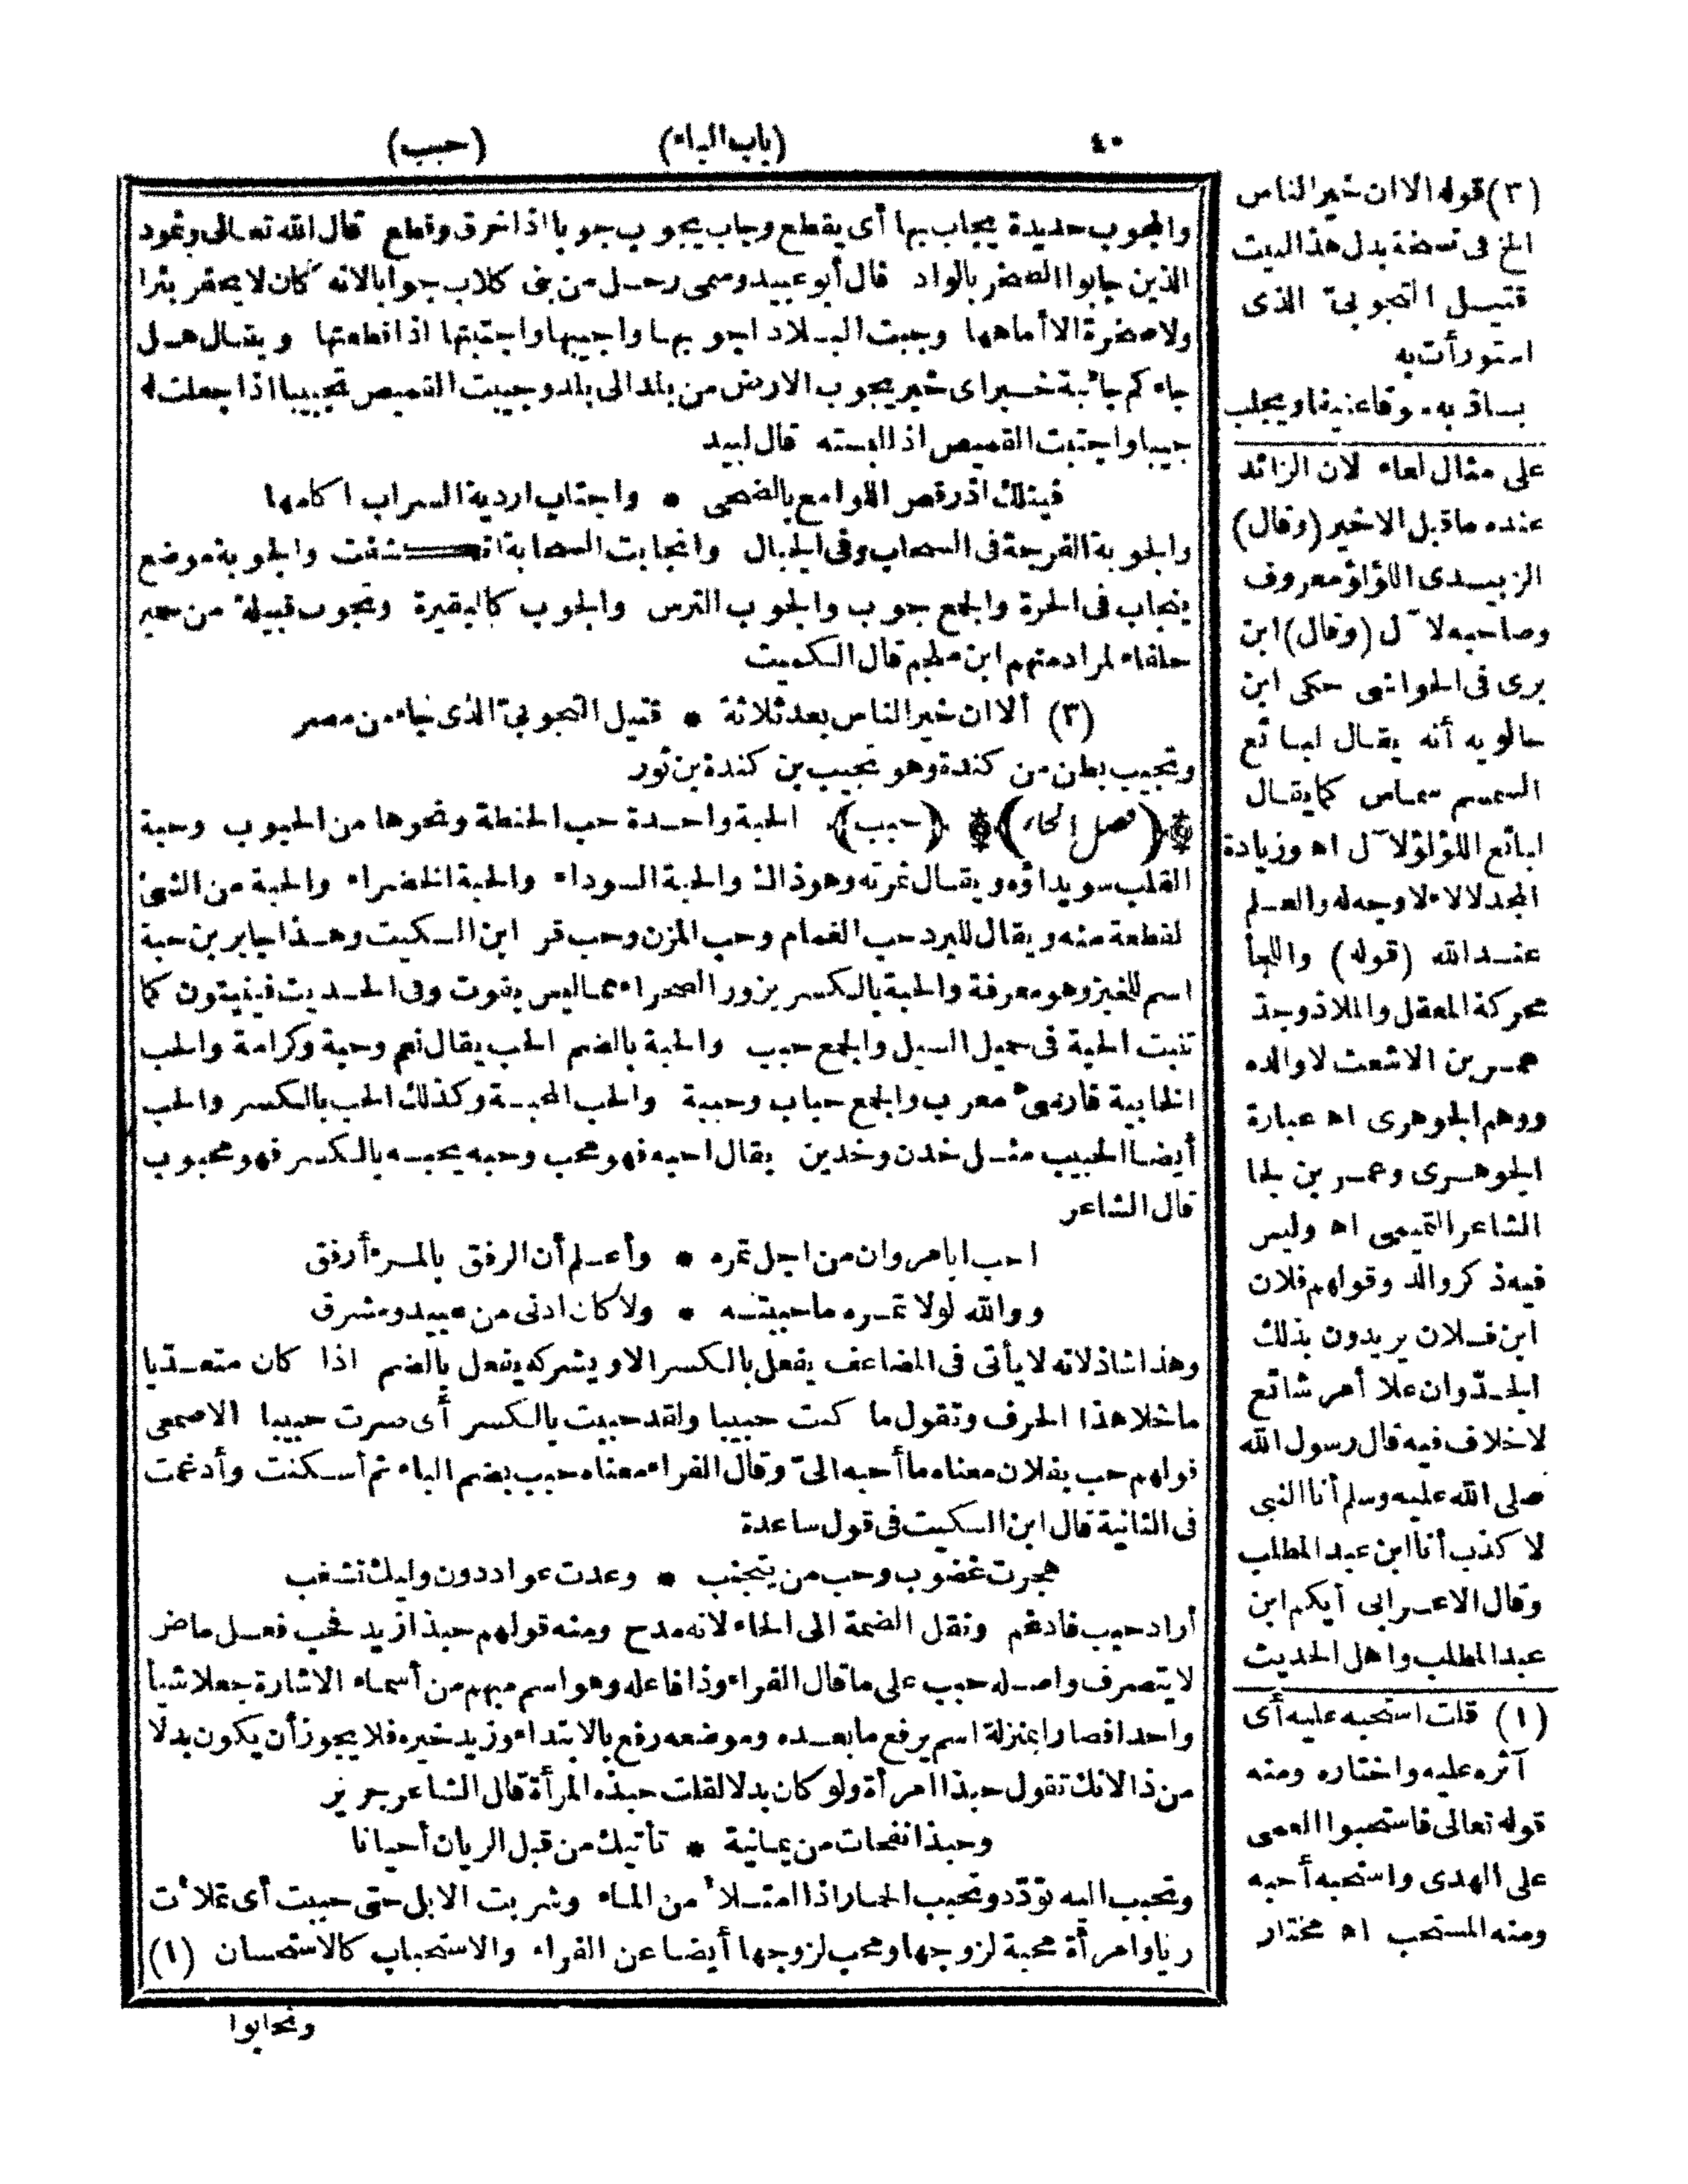 ٤٠
(باب الباء)
(حبب)
والمجوب حديدة يجاب بها أى يقطع وجاب يجوب جوبا اذا خرق وقطع قال الله تعالى وثمود
الذين جابوا الصخر بالواد قال أبو عبيد وسمى رجل من بنى كلاب جوابا لانه كان لا يحفر بئرا
ولا صخرة الا أماهها وجبت البلاد اجوبها واجيبها واجتبتها اذا قطعتها ويقال هل
جاءكم جائبة خبر اى خبر يجوب الارض من بلد الى بلد وجيبت القميص تجييبا اذا جعلت له
جيبا واجتبت القميص اذ البسته قال لبيد
فبتلك اذ رقص اللوامع بالضحى * واجتاب اردية السراب اكامها
والجوبة الفرجة فى السحاب وفى الجبال وانجابت السحابة انكشفت والجوبة موضع
ينجاب فى الحرة والجمع جوب والجوب الترس والجوب كالبقيرة وتجوب قبيلة من حمير
حلفاء لمراد منهم ابن ملجم قال الكميت
(٣) ألا ان خير الناس بعد ثلاثة * قتيل التجوبىّ الذى جاء من مصر
وتجيب بطن من كندة وهو تجيب بن كندة بن ثور
(فصل الحاء) (حبب) الحبة واحدة حب الحنطة ونحوها من الحبوب وحبة
القلب سويداؤه ويقال ثمرته وهو ذاك والحبة السوداء والحبة الخضراء والحبة من الشئ
لقطعة منه ويقال للبرد حب الغمام وحب المزن وحب قر ابن السكيت وهذا جابر بن حبة
اسم للخبز وهو معرفة والحبة بالكسر بزور الصحراء مما ليس بقوت وفى الحديث فينبتون كما
تنبت الحبة فى حميل السيل والجمع حبب والحبة بالضم الحب يقال نعم وحبة وكرامة والحب
الخابية فارسى معرب والجمع حباب وحببة والحب المحبة وكذلك الحب بالكسر والحب
أيضا الحبيب مثل خدن وخدين يقال احبه فهو محب وحبه يحبه بالكسر فهو محبوب
قال الشاعر
احب ابا مروان من اجل تمره * وأعلم أن الرفق بالمرء أرفق
ووالله لولا تمره ما حببته * ولا كان ادنى من عبيد ومشرق
وهذا شاذ لانه لا يأتى فى المضاعف يفعل بالكسر الا ويشركه يفعل بالضم اذا كان متعديا
ما خلا هذا الحرف وتقول ما كنت حبيبا ولقد حببت بالكسر أى صرت حبيبا الاصمعى
قولهم حب بفلان معناه ما أحبه الىّ وقال الفراء معناه حبب بضم الباء ثم أسكنت وأدغمت
فى الثانية قال ابن السكيت فى قول ساعدة
هجرت غضوب وحب من يتجنب * وعدت عواد دون وليك تشغب
أراد حبب فادغم ونقل الضمة الى الحاء لانه مدح ومنه قولهم حبذا زيد فحب فعل ماض
لا يتصرف واصله حبب على ما قال الفراء وذا فاعله وهو اسم مبهم من أسماء الاشارة جعلا شيأ
واحدا فصارا بمنزلة اسم يرفع ما بعده وموضعه رفع بالابتداء وزيد خبره فلا يجوز أن يكون بدلا
من ذا لانك تقول حبذا امرأة ولو كان بدلا لقلت حبذه المرأة قال الشاعر جرير
وحبذا نفحات من يمانية * تأتيك من قبل الريان أحيانا
وتحبب اليه تودّد وتحبب الحمار اذا امتلأ من الماء وشربت الابل حتى حببت أى تملأت
ريا وامرأة محبة لزوجها ومحب لزوجها أيضا عن الفراء والاستحباب كالاستحسان (١)
وتحابوا
(٣) قوله الا ان خير الناس
الخ فى نسخة بدل هذا البيت
قتيل التجوبىّ الذى
استورأت به
يساق به سوقا عنيفا ويجلب
على مثال لعاء لان الزائد
عنده ما قبل الاخير (وقال)
الزبيدى اللؤلؤ معروف
وصاحبه لآل (وقال) ابن
برى فى الحواشى حكى ابن
خالويه أنه يقال لبائع
السمسم سماس كما يقال
لبائع اللؤلؤ لآل اه وزيادة
المجد لالاء لا وجه له والعلم
عند الله (قوله) واللجأ
محركة المعقل والملاذ وجد
عمر بن الاشعث لا والده
ووهم الجوهرى اه عبارة
الجوهرى وعمر بن لجا
الشاعر التميمى اه وليس
فيه ذكر والد وقولهم فلان
ابن فلان يريدون بذلك
الجدّ وان علا أمر شائع
لا خلاف فيه قال رسول الله
صلى الله عليه وسلم أنا النبى
لا كذب أنا ابن عبد المطلب
وقال الاعرابى أيكم ابن
عبد المطلب واهل الحديث
(١) قلت استحبه عليه أى
آثره عليه واختاره ومنه
قوله تعالى فاستحبوا العمى
على الهدى واستحبه أحبه
ومنه المستحب اه مختار